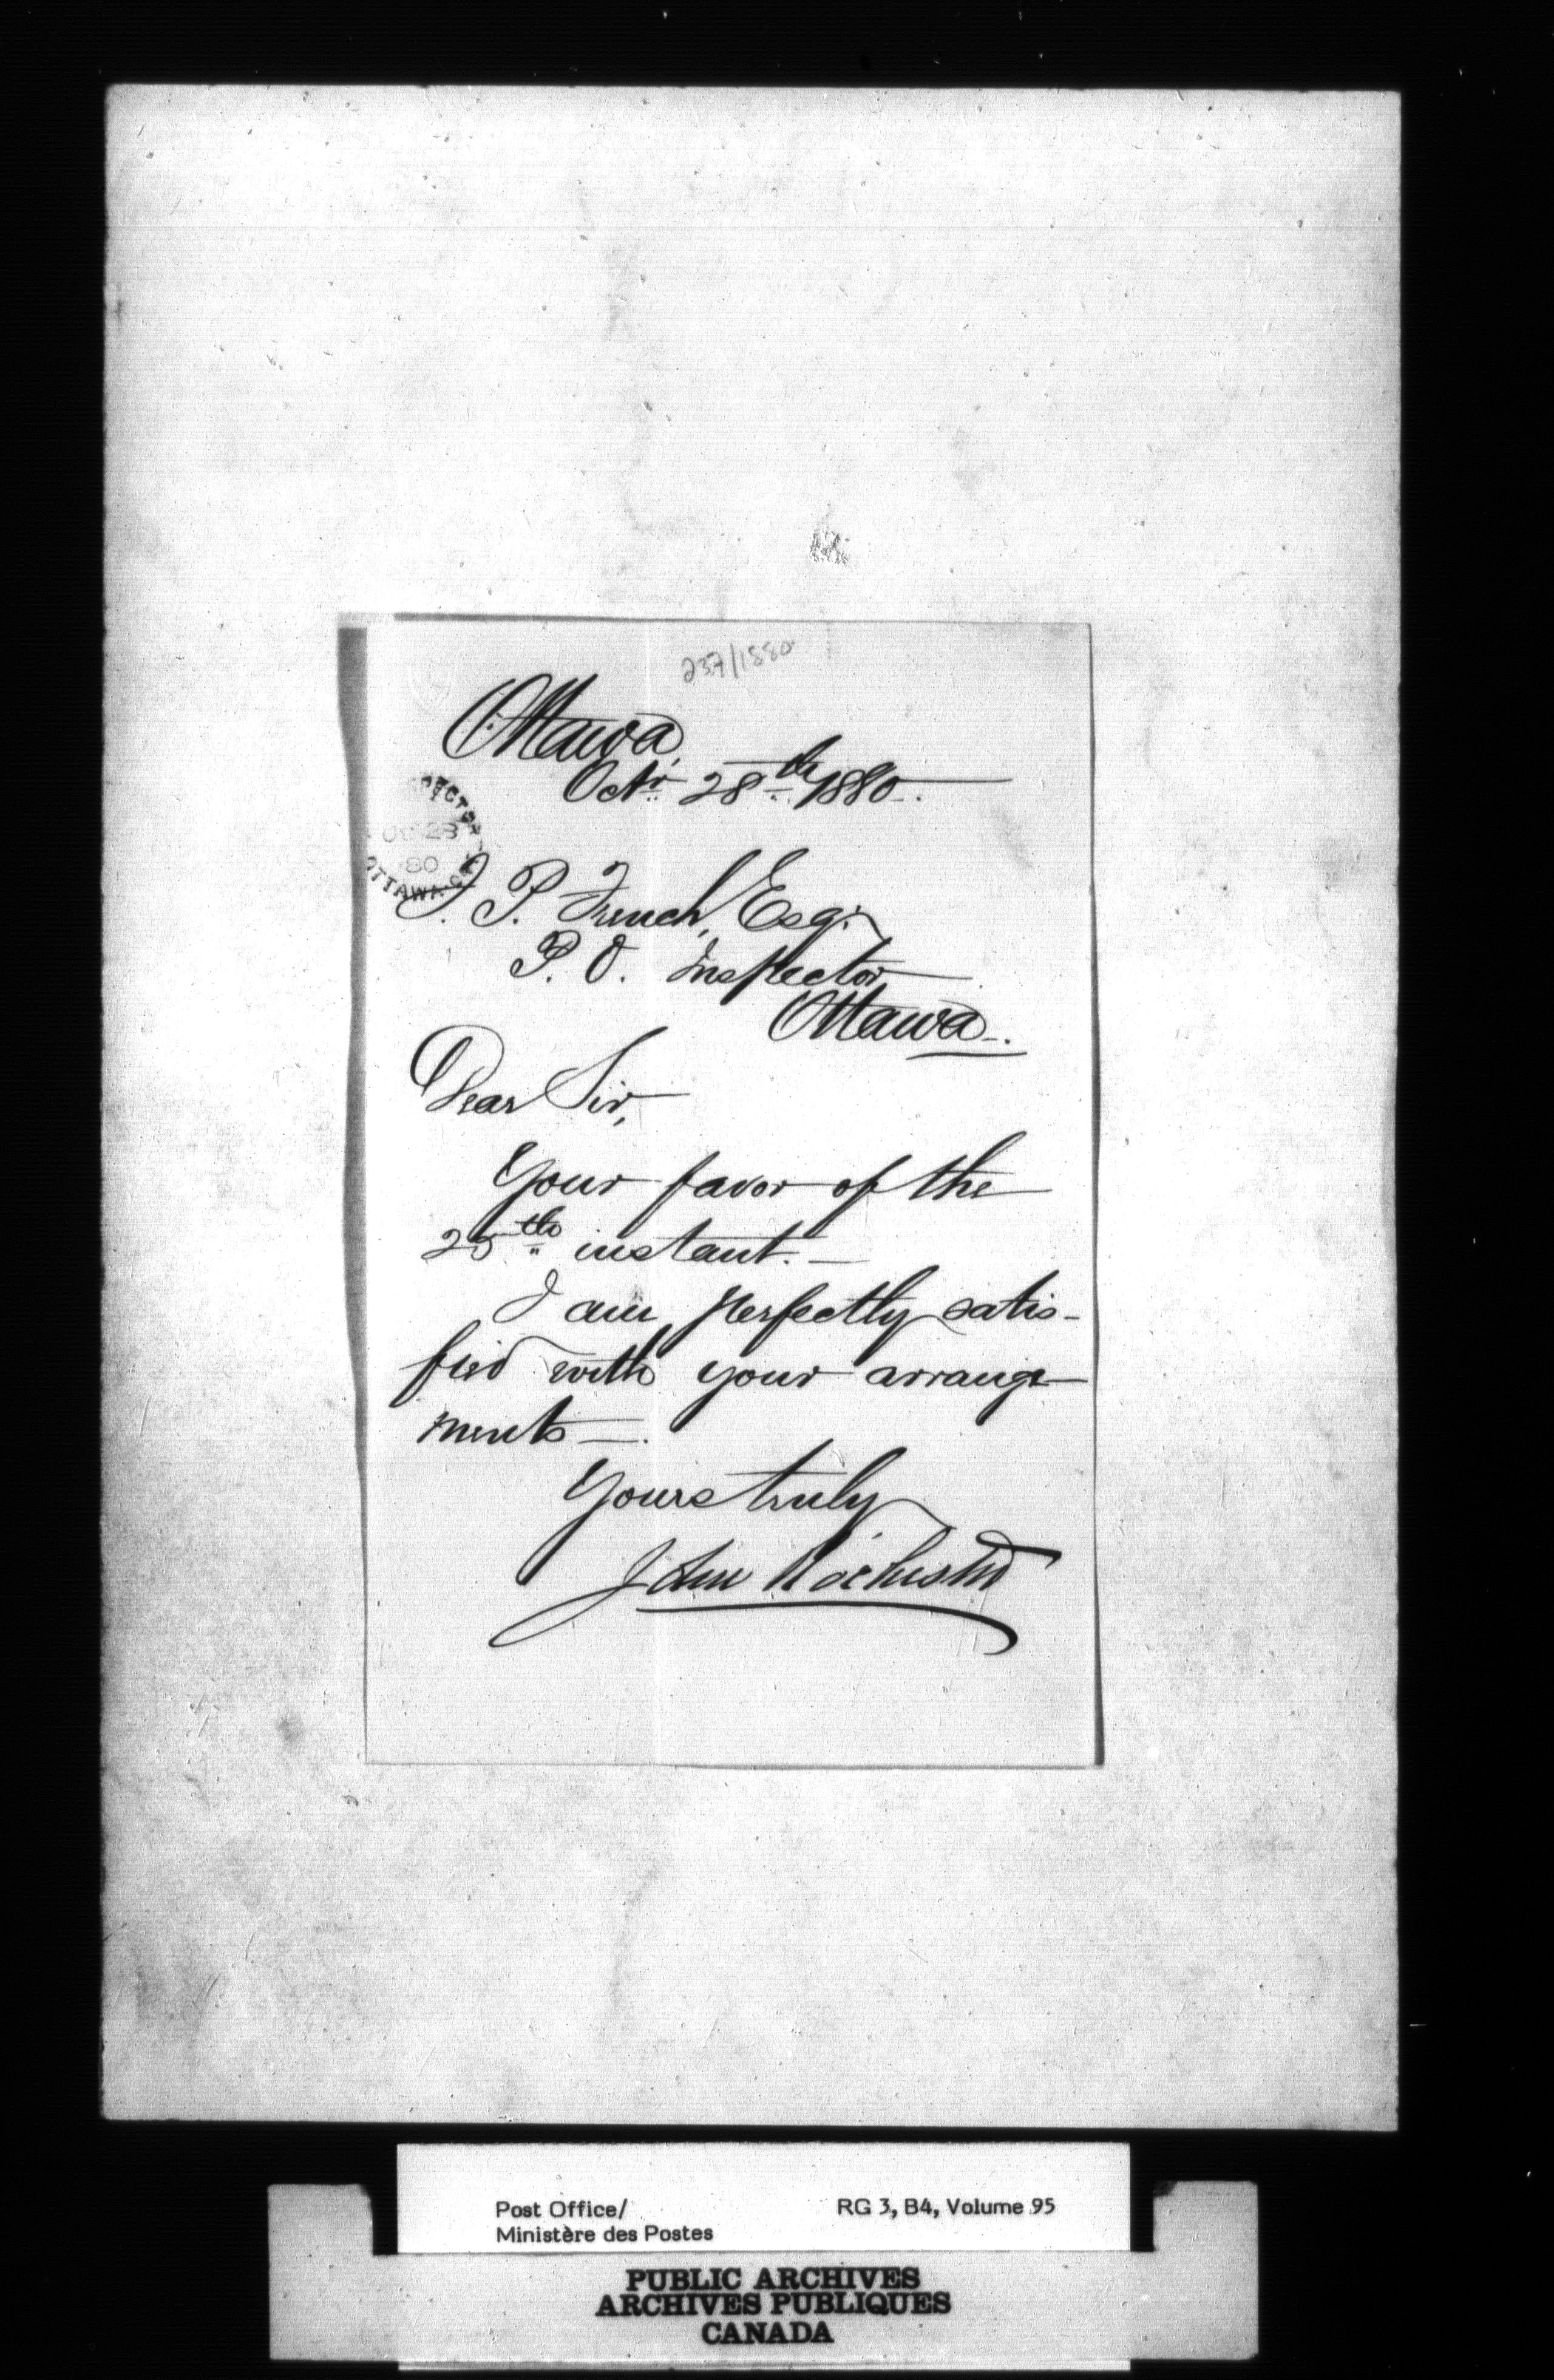 237/1880
Ottawa,
Octr 28th 1880.
OC 28
80
OTTAWA
T. P. French, Esqr
P. O. Inspector
Ottawa.
Dear Sir,
Your favor of the
25th instant. —
I am perfectly satis-
fied with your arrange
ments —.
Yours truly
John Rochester
Post Office/
Ministère des Postes
RG 3, B4, Volume 95
PUBLIC ARCHIVES
ARCHIVES PUBLIQUES
CANADA